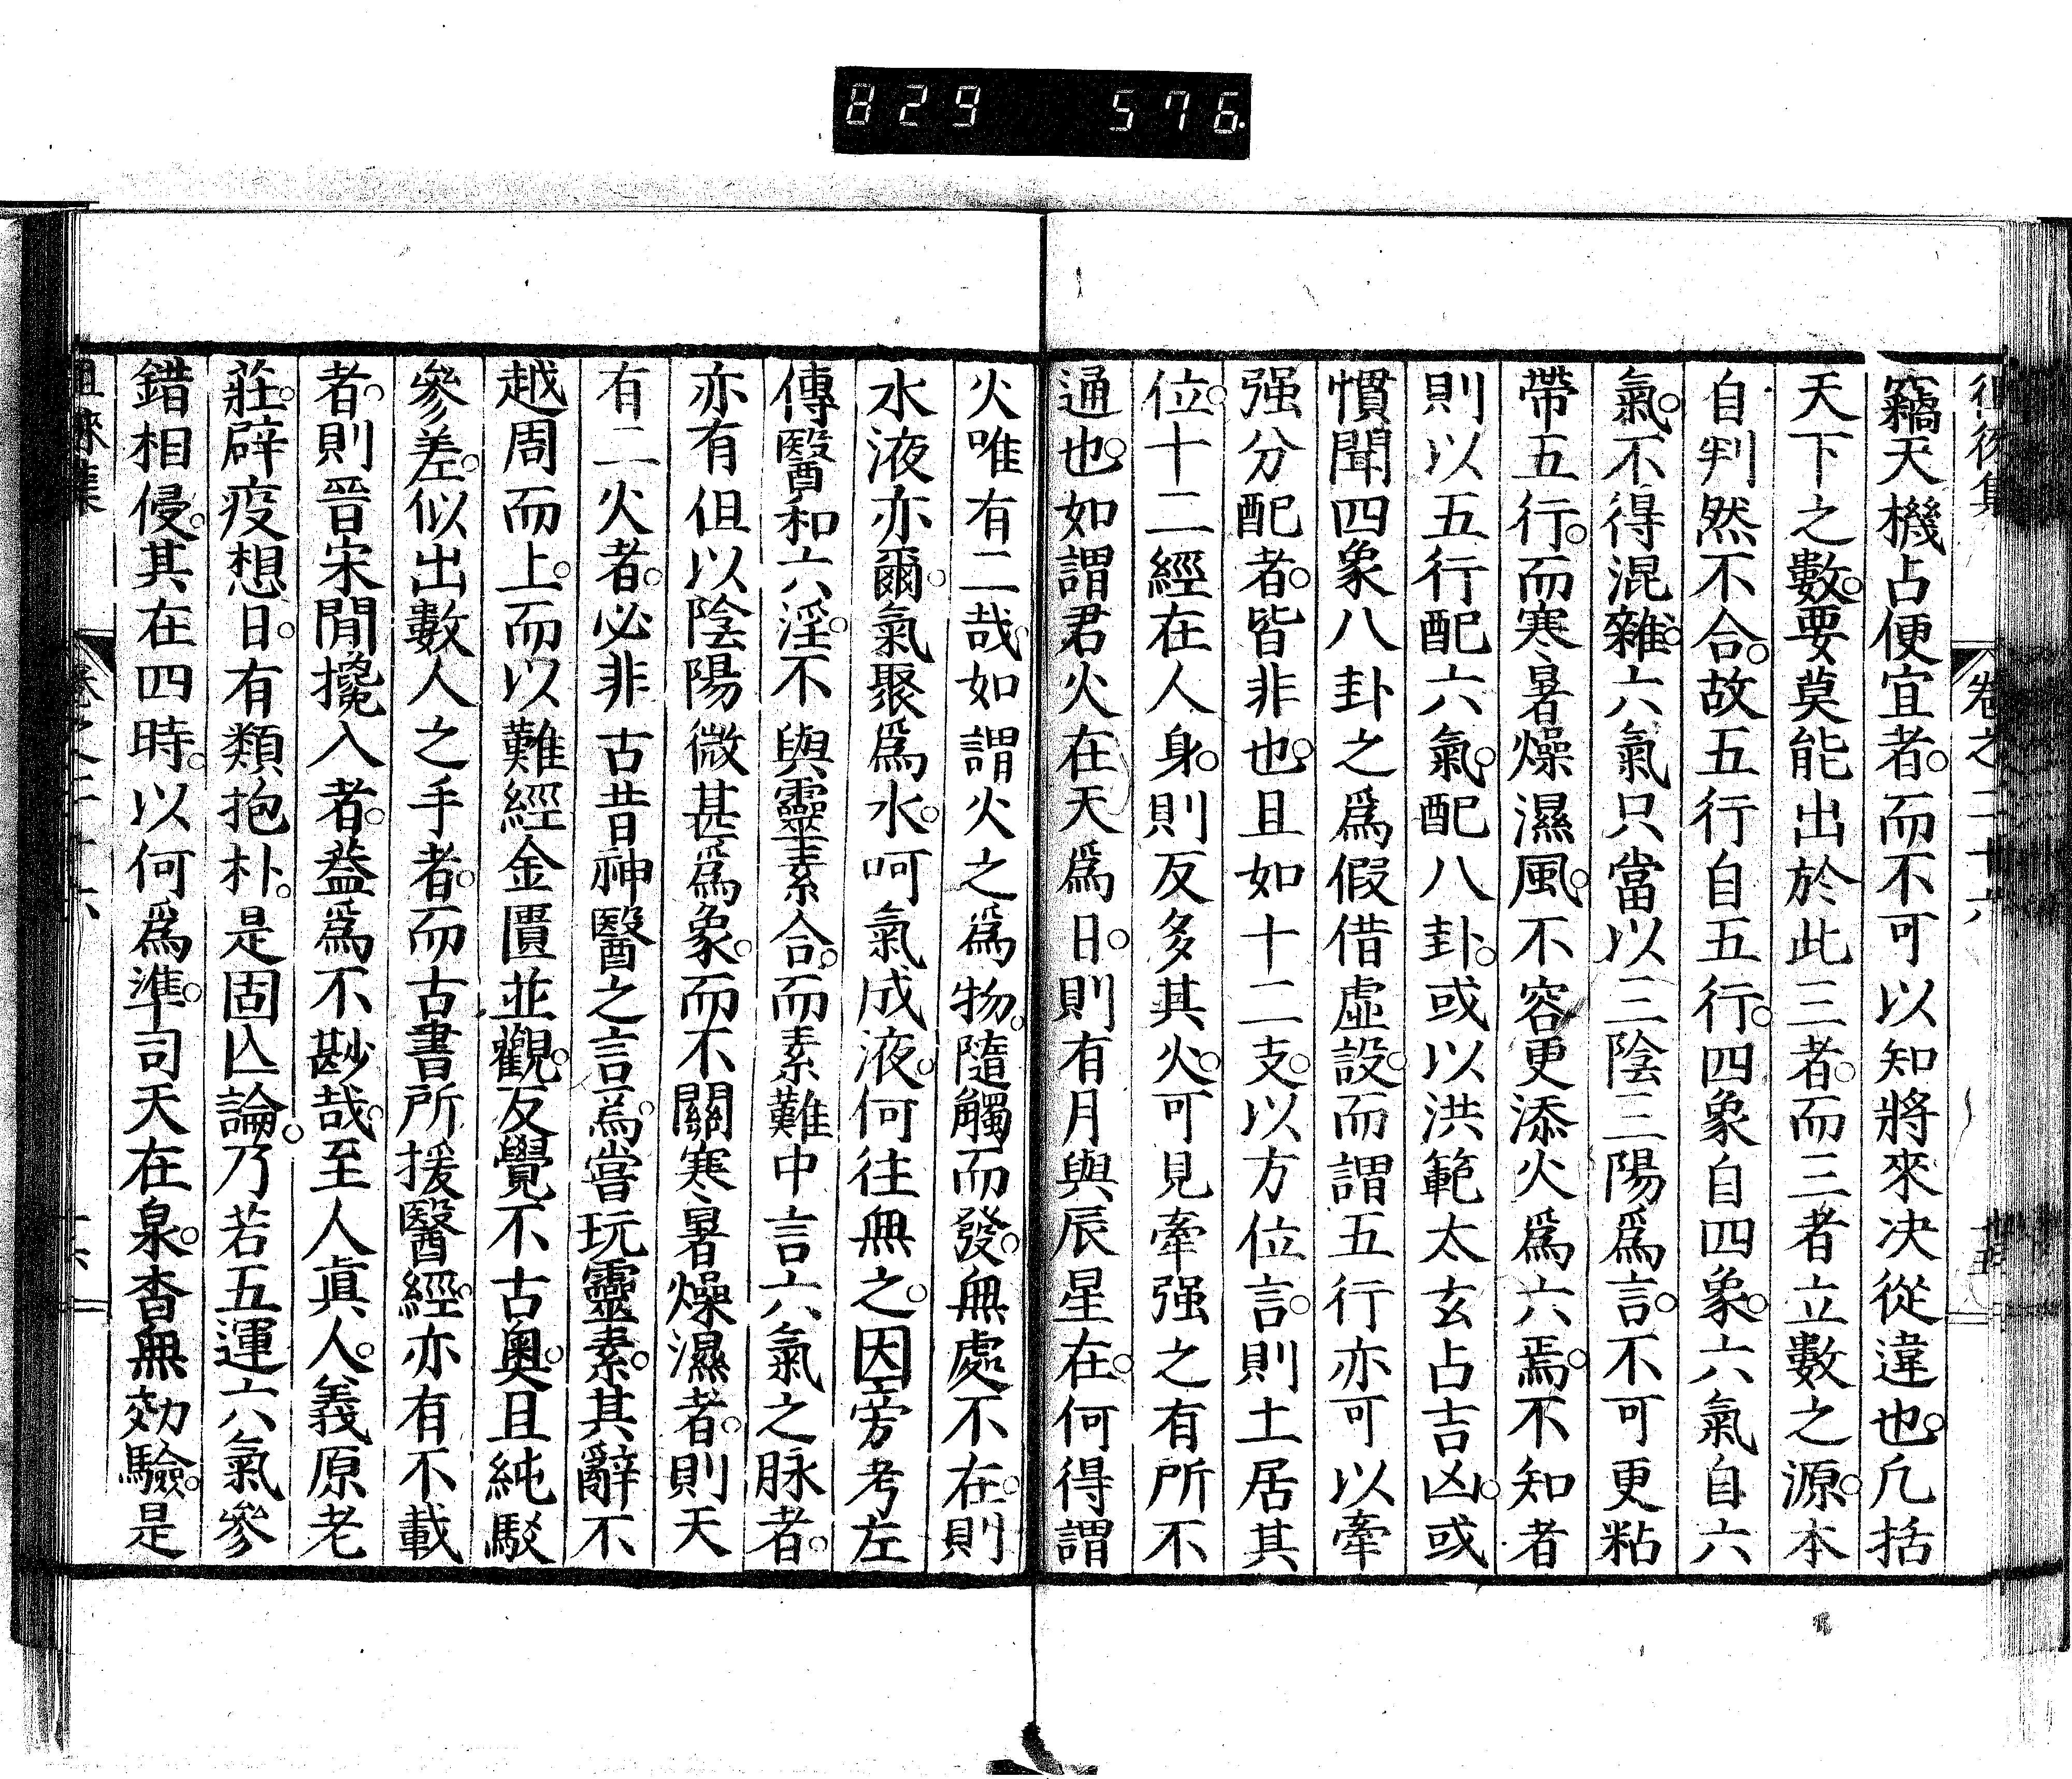 829 576
徂徠集 卷之二十六
竊天機占便宜者。而不可以知將來决從違也。凢括
天下之數。要莫能出於此三者。而三者立數之源。本
自判然不合。故五行自五行。四象自四象。六氣自六
氣。不得混雜。六氣只當以三陰三陽爲言。不可更粘
帶五行。而寒暑燥濕風。不容更添火爲六焉。不知者
則以五行配六氣。配八卦。或以洪範太玄占吉凶。或
慣聞四象八卦之爲假借虛設。而謂五行亦可以牽
强分配者。皆非也。且如十二支。以方位言。則土居其
位。十二經在人身。則反多其火。可見牽强之有所不
通也。如謂君火在天爲日。則有月與辰星在。何得謂
火唯有二哉。如謂火之爲物。隨觸而發。無處不在。則
水液亦爾。氣聚爲水。呵氣成液。何往無之。因旁考左
傳醫和六淫。不與靈素合。而素難中言六氣之脉者。
亦有但以陰陽微甚爲象。而不關寒暑燥濕者。則天
有二火者。必非古昔神醫之言焉。嘗玩靈素。其辭不
越周而上。而以難經金匱並觀。反覺不古奧。且純駁
參差。似出數人之手者。而古書所援醫經。亦有不載
者。則晉宋間攙入者。益爲不尠哉。至人眞人。義原老
莊。辟疫想日。有類抱朴。是固亾論。乃若五運六氣參
錯相侵。其在四時。以何爲準。司天在泉。杳無効驗。是
徂徠集 卷之二十六